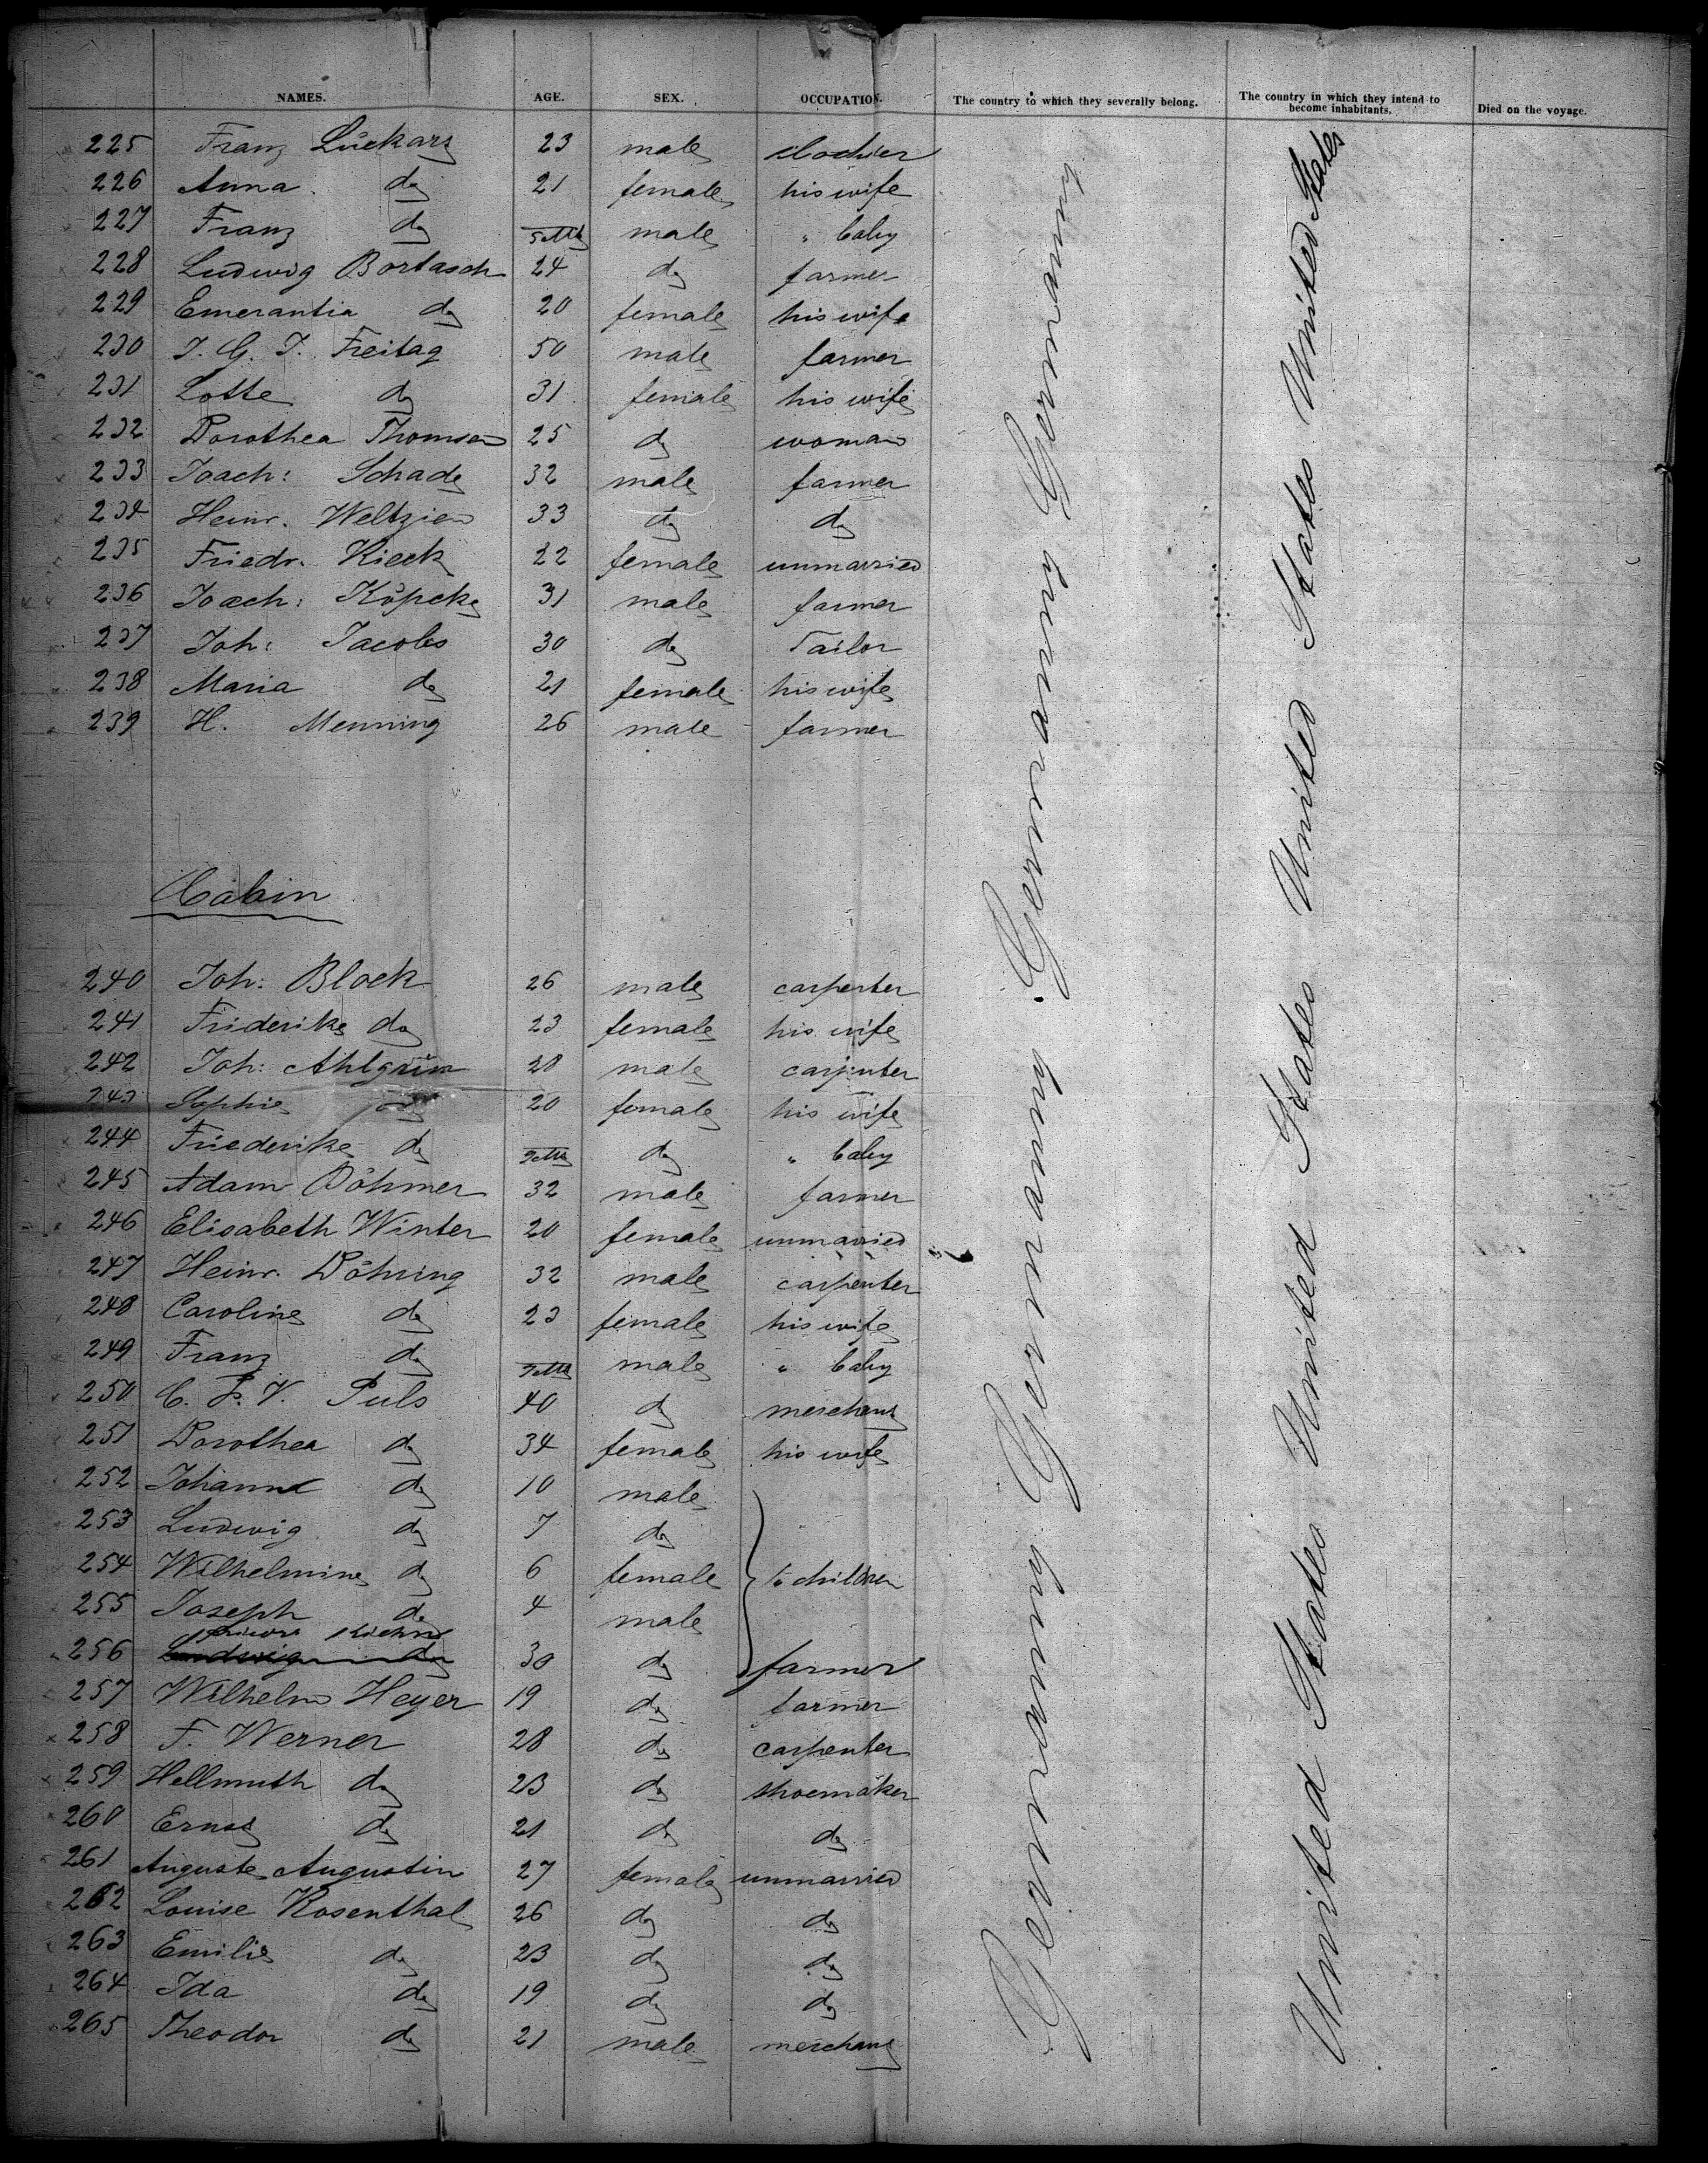 NAMES. AGE. SEX. OCCUPATION. The country to which they severally belong. The country in which they intend to become inhabitants. Died on the voyage.
225 Franz Lückarz 23 male
226 Anna do 21 female his wife
227 Franz do male " baby
228 Ludwig Bortasch 24 do farmer
229 Emerantia do 20 female his wife
230 J. G. J. Freitag 50 male farmer
231 Lotte do 31 female his wife
232 Dorothea Thomsen 25 do woman
233 Joach: Schade 32 male farmer
234 Heinr. Weltzien 33 do do
235 Friedr. Kieck 22 female unmarried
236 Joach: Köpcke 31 male farmer
237 Joh: Jacobs 30 do Tailor
238 Maria do 21 female his wife
239 H. Menning 26 male farmer
Cabin
240 Joh: Block 26 male carpenter
241 Friderike do 23 female his wife
242 Joh: Ahlgrim 28 male carpenter
243 Sophie do 20 female his wife
244 Friederike do do " baby
245 Adam Böhmer 32 male farmer
246 Elisabeth Winter 20 female unmarried
247 Heinr. Döhring 32 male carpenter
248 Caroline do 23 female his wife
249 Franz do male " baby
250 C. P. V. Puls 40 do merchant
251 Dorothea do 34 female his wife
252 Johann do 10 male
253 Ludwig do 7 do
254 Wilhelmine do 6 female children
255 Joseph do 4 male
256 Ludwig do 30 do farmer
257 Wilhelm Heyer 19 do farmer
258 F. Werner 28 do carpenter
259 Hellmuth do 23 do shoemaker
260 Ernst do 21 do do
261 Auguste Augustin 27 female unmarried
262 Louise Rosenthal 26 do do
263 Emilie do 23 do do
264 Ida do 19 do do
265 Theodor do 21 male merchant
Germany Germany Germany Germany Germany
United States United States United States United States United States